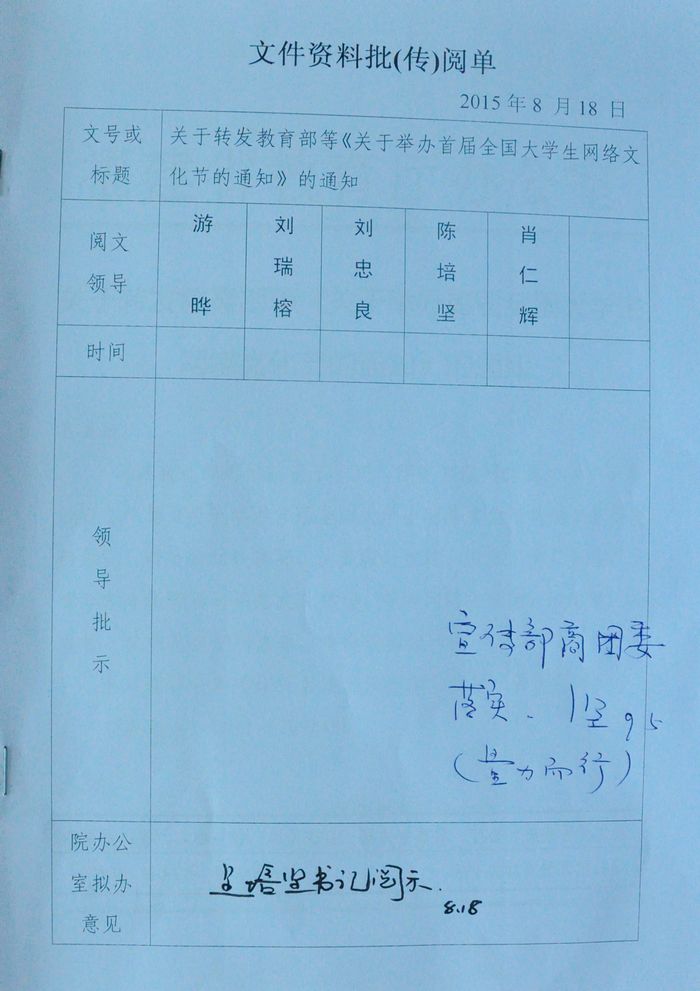 文件资料批(传)阅单
2015年8月18日
文号或标题
关于转发教育部等《关于举办首届全国大学生网络文
化节的通知》的通知
阅文领导
游晔
刘瑞榕
刘忠良
陈培坚
肖仁辉
时间
领导批示
宣传部商团委
落实、坚 9.5
(量力而行)
院办公室拟办意见
呈培坚书记阅示.
8.18